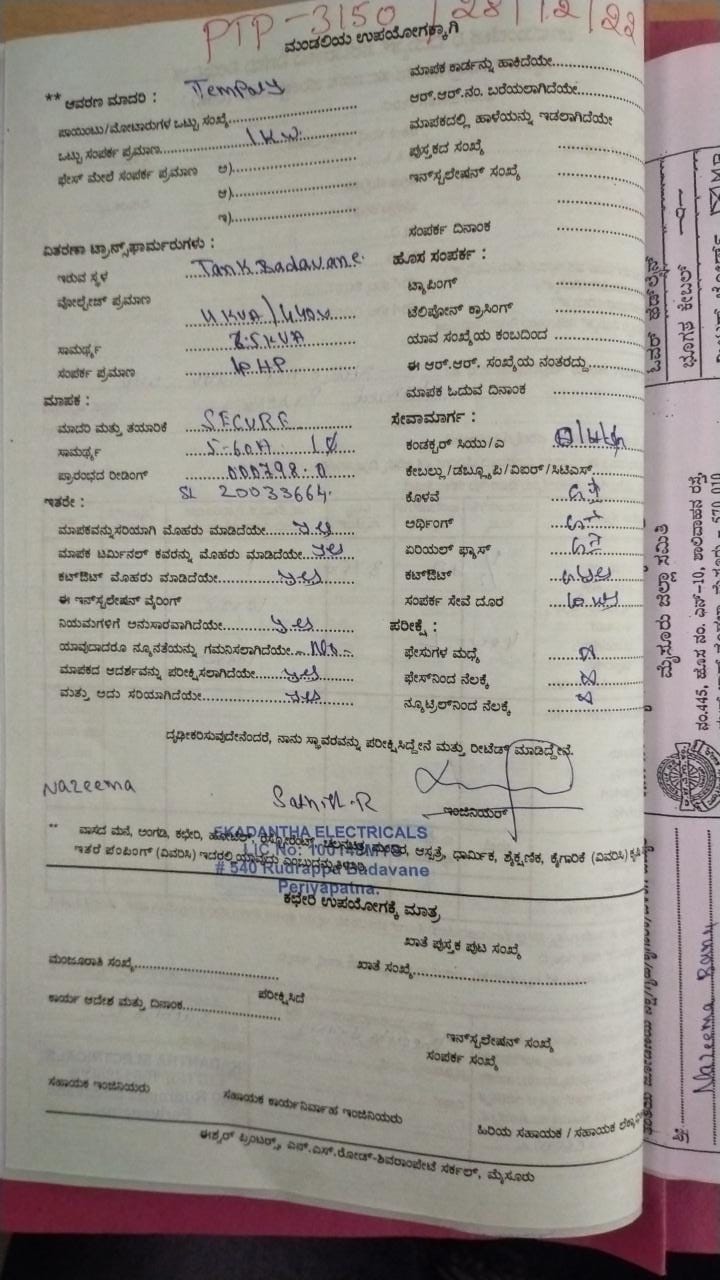 PTP-3150/28/12/22
ಮಂಡಲಿಯ ಉಪಯೋಗಕ್ಕಾಗಿ
** ಆವರಣ ಮಾದರಿ :
ಪಾಯಿಂಟು/ಮೋಟಾರುಗಳ ಒಟ್ಟು ಸಂಖ್ಯೆ
ಒಟ್ಟು ಸಂಪರ್ಕ ಪ್ರಮಾಣ 1KW
ಫೇಸ್ ಮೇಲೆ ಸಂಪರ್ಕ ಪ್ರಮಾಣ ಅ)
ಆ)
ಇ)
ವಿತರಣಾ ಟ್ರಾನ್ಸ್‌ಫಾರ್ಮರುಗಳು :
ಇರುವ ಸ್ಥಳ Tank Badavane
ವೋಲ್ಟೇಜ್ ಪ್ರಮಾಣ
ಸಾಮರ್ಥ್ಯ
ಸಂಪರ್ಕ ಪ್ರಮಾಣ
ಮಾಪಕ :
ಮಾದರಿ ಮತ್ತು ತಯಾರಿಕೆ SECURE
ಸಾಮರ್ಥ್ಯ 5-60A 1Ø
ಪ್ರಾರಂಭದ ರೀಡಿಂಗ್ 000798.0
ಇತರೇ : SL 20033664.
ಮಾಪಕವನ್ನು ಸರಿಯಾಗಿ ಮೊಹರು ಮಾಡಿದೆಯೇ yes
ಮಾಪಕ ಟರ್ಮಿನಲ್ ಕವರನ್ನು ಮೊಹರು ಮಾಡಿದೆಯೇ yes
ಕಟ್‌ಔಟ್ ಮೊಹರು ಮಾಡಿದೆಯೇ yes
ಈ ಇನ್‌ಸ್ಟಲೇಷನ್ ವೈರಿಂಗ್
ನಿಯಮಗಳಿಗೆ ಅನುಸಾರವಾಗಿದೆಯೇ yes
ಯಾವುದಾದರೂ ನ್ಯೂನತೆಯನ್ನು ಗಮನಿಸಲಾಗಿದೆಯೇ No
ಮಾಪಕದ ಆದರ್ಶವನ್ನು ಪರೀಕ್ಷಿಸಲಾಗಿದೆಯೇ yes
ಮತ್ತು ಅದು ಸರಿಯಾಗಿದೆಯೇ yes
ಮಾಪಕ ಕಾರ್ಡನ್ನು ಹಾಕಿದೆಯೇ
ಆರ್.ಆರ್.ನಂ. ಬರೆಯಲಾಗಿದೆಯೇ
ಮಾಪಕದಲ್ಲಿ ಹಾಳೆಯನ್ನು ಇಡಲಾಗಿದೆಯೇ
ಪುಸ್ತಕದ ಸಂಖ್ಯೆ
ಇನ್‌ಸ್ಟಲೇಷನ್ ಸಂಖ್ಯೆ
ಸಂಪರ್ಕ ದಿನಾಂಕ
ಹೊಸ ಸಂಪರ್ಕ :
ಟ್ಯಾಪಿಂಗ್
ಟೆಲಿಫೋನ್ ಕ್ರಾಸಿಂಗ್
ಯಾವ ಸಂಖ್ಯೆಯ ಕಂಬದಿಂದ
ಈ ಆರ್.ಆರ್. ಸಂಖ್ಯೆಯ ನಂತರದ್ದು
ಮಾಪಕ ಓದುವ ದಿನಾಂಕ
ಸೇವಾಮಾರ್ಗ :
ಕಂಡಕ್ಟರ್ ಸಿಯು/ಎ
ಕೇಬಲ್ಲು/ಡಬ್ಲ್ಯೂಪಿ/ವಿಐಆರ್/ಸಿಟಿಎಸ್
ಕೊಳವೆ
ಅರ್ಥಿಂಗ್
ಏರಿಯಲ್ ಫ್ಯೂಸ್
ಕಟ್‌ಔಟ್
ಸಂಪರ್ಕ ಸೇವೆ ದೂರ
ಪರೀಕ್ಷೆ :
ಫೇಸುಗಳ ಮಧ್ಯೆ
ಫೇಸ್‌ನಿಂದ ನೆಲಕ್ಕೆ
ನ್ಯೂಟ್ರಲ್‌ನಿಂದ ನೆಲಕ್ಕೆ
ದೃಢೀಕರಿಸುವುದೇನೆಂದರೆ, ನಾನು ಸ್ಥಾವರವನ್ನು ಪರೀಕ್ಷಿಸಿದ್ದೇನೆ ಮತ್ತು ರೀಟೆಡ್ ಮಾಡಿದ್ದೇನೆ.
Nazeema
ಇಂಜಿನಿಯರ್
EKADANTHA ELECTRICALS
# 540 Rudrappa Badavane
Periyapatna.
** ವಾಸದ ಮನೆ, ಅಂಗಡಿ, ಕಛೇರಿ, ಆಸ್ಪತ್ರೆ, ಧಾರ್ಮಿಕ, ಶೈಕ್ಷಣಿಕ, ಕೈಗಾರಿಕೆ (ವಿವರಿಸಿ)
ಇತರೆ ಪಂಪಿಂಗ್ (ವಿವರಿಸಿ)
ಕಛೇರಿ ಉಪಯೋಗಕ್ಕೆ ಮಾತ್ರ
ಖಾತೆ ಪುಸ್ತಕ ಪುಟ ಸಂಖ್ಯೆ
ಮಂಜೂರಾತಿ ಸಂಖ್ಯೆ ಖಾತೆ ಸಂಖ್ಯೆ
ಕಾರ್ಯ ಆದೇಶ ಮತ್ತು ದಿನಾಂಕ ಪರೀಕ್ಷಿಸಿದೆ
ಇನ್‌ಸ್ಟಲೇಷನ್ ಸಂಖ್ಯೆ
ಸಂಪರ್ಕ ಸಂಖ್ಯೆ
ಸಹಾಯಕ ಇಂಜಿನಿಯರು ಸಹಾಯಕ ಕಾರ್ಯನಿರ್ವಾಹ ಇಂಜಿನಿಯರು ಹಿರಿಯ ಸಹಾಯಕ / ಸಹಾಯಕ
ಈಶ್ವರ್ ಪ್ರಿಂಟರ್ಸ್, ಎನ್.ಎಸ್.ರೋಡ್-ಶಿವರಾಂಪೇಟೆ ಸರ್ಕಲ್, ಮೈಸೂರು
ಓವರ್ ಹೆಡ್‌ಲೈನ್
ಭೂಗತ ಕೇಬಲ್
ಮೈಸೂರು ಜಿಲ್ಲಾ ಸಮಿತಿ
ನಂ.445, ಹೊಸ ನಂ. ಎನ್-10, ಶಾಲಿವಾಹನ ರಸ್ತೆ
ಶ್ರೀ Nazeema Banu